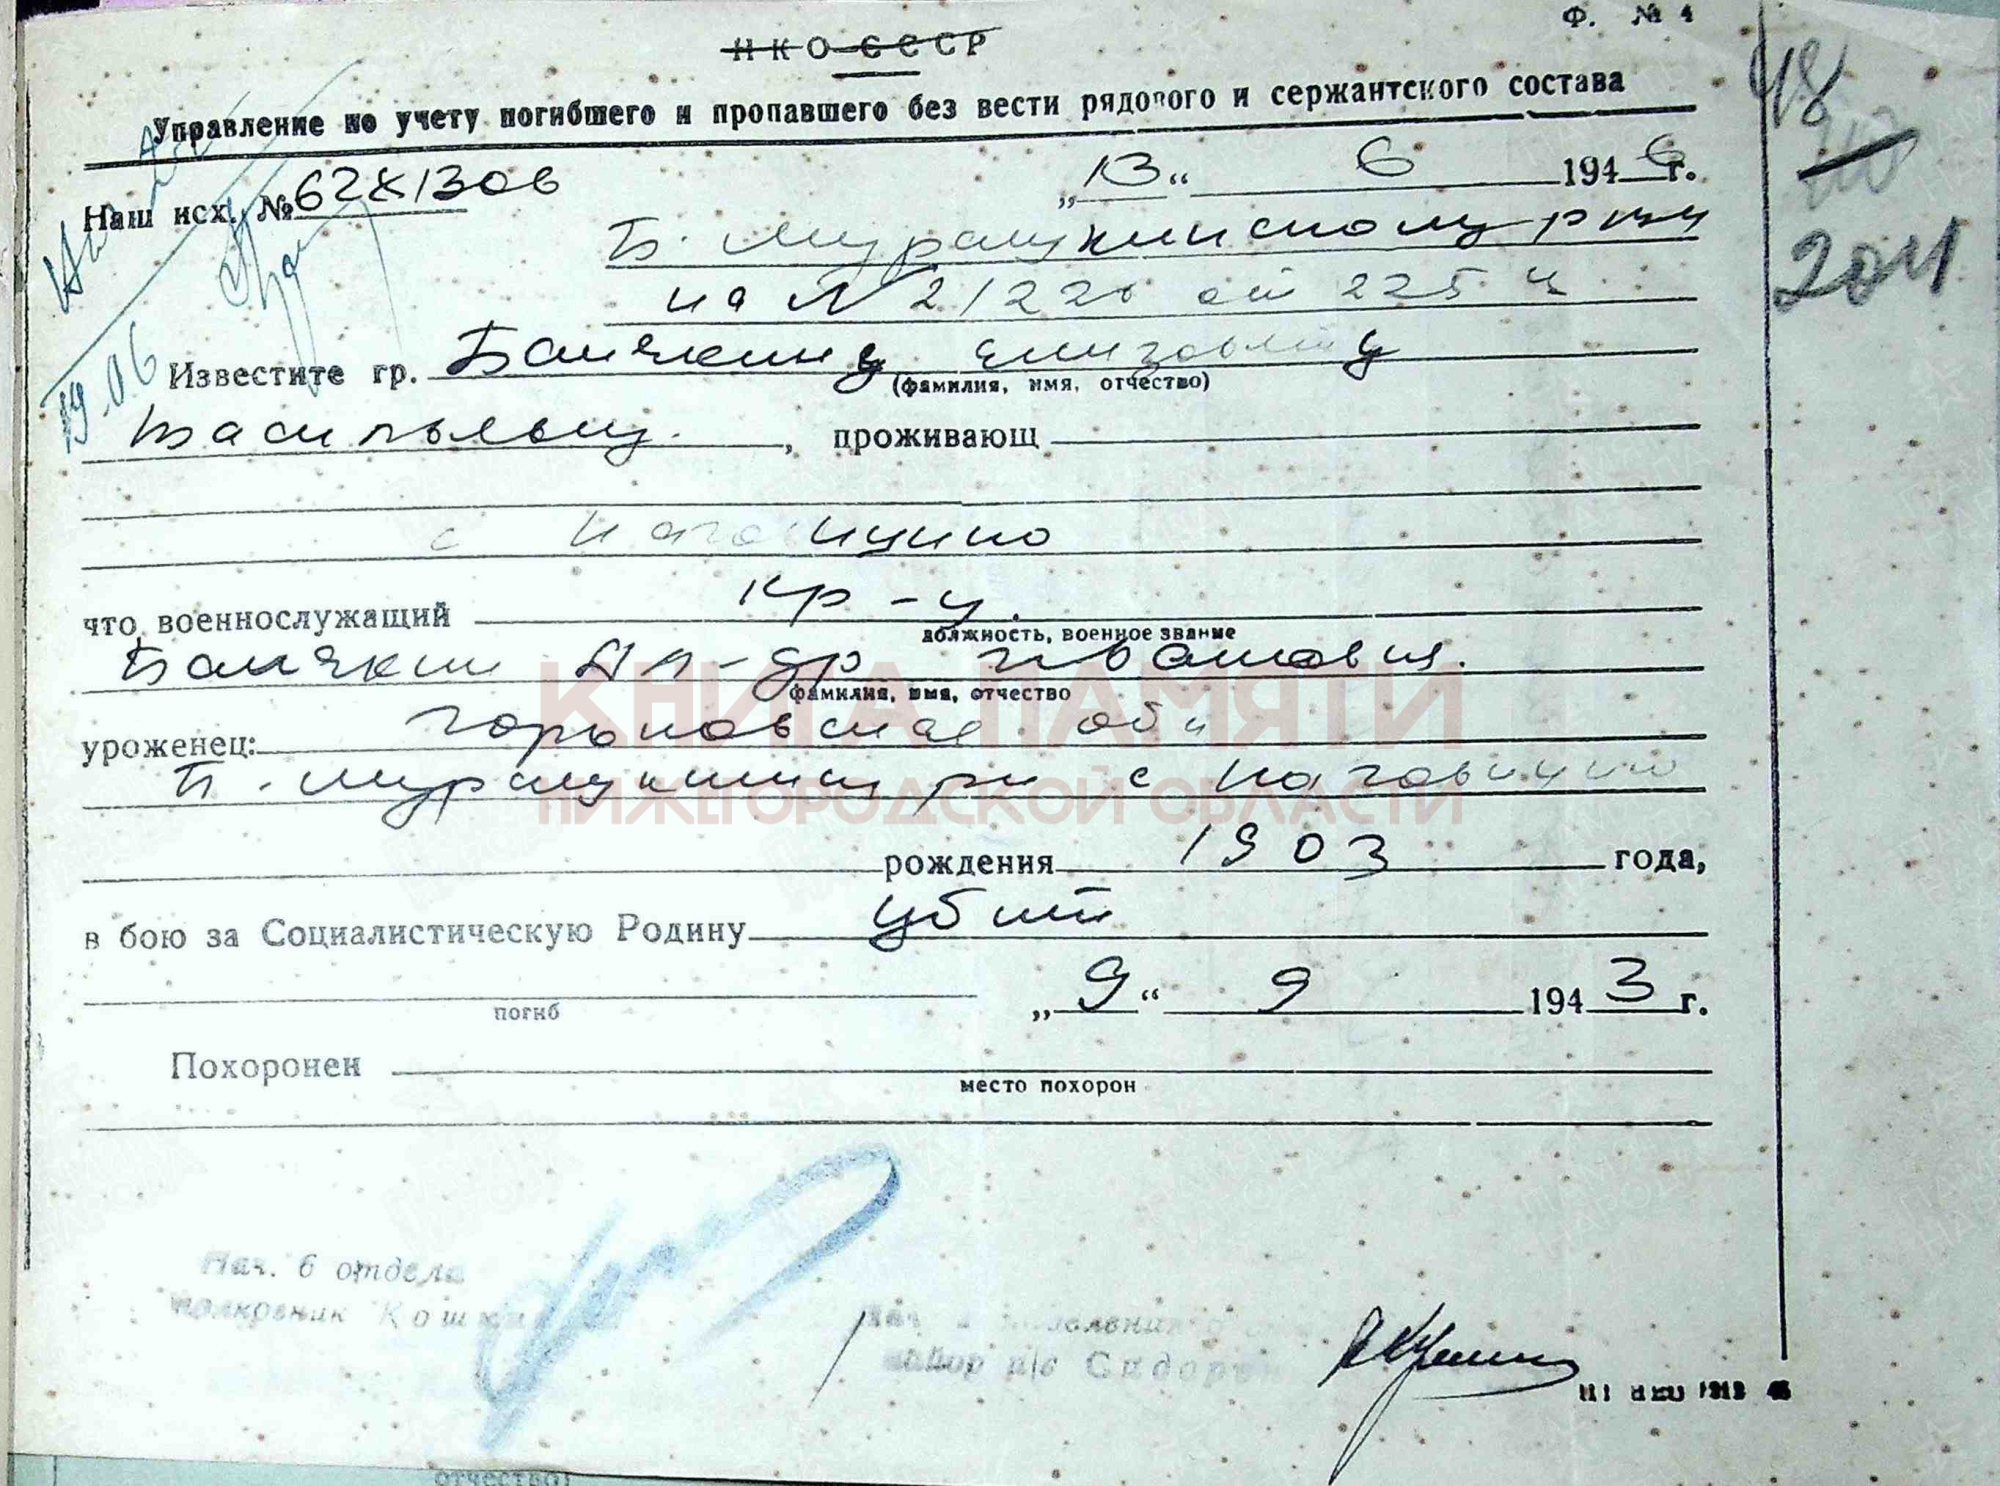 Ф. № 4
НКО СССР
Управление по учету погибшего и пропавшего без вести рядового и сержантского состава
Наш исх. № 62Х1306 „13“ 6 1946 г.
Б. Мурашкинскому рвк
на № 2/226 от 22 5 4
Известите гр. Банякину Елизовету
(фамилия, имя, отчество)
Васильевну, проживающ
с Наговицино
что военнослужащий кр-ц.
должность, военное звание
Банякин Ал-др Иванович.
фамилия, имя, отчество
уроженец: Горьковская обл
Б. Мурашкинск рн с Наговицино
рождения 1903 года,
в бою за Социалистическую Родину убит
погиб „9“ 9 1943 г.
Похоронен
место похорон
48
2041
19.06
КНИГА ПАМЯТИ
НИЖЕГОРОДСКОЙ ОБЛАСТИ
Нач. 6 отдела
полковник
майор а/с
отчество)